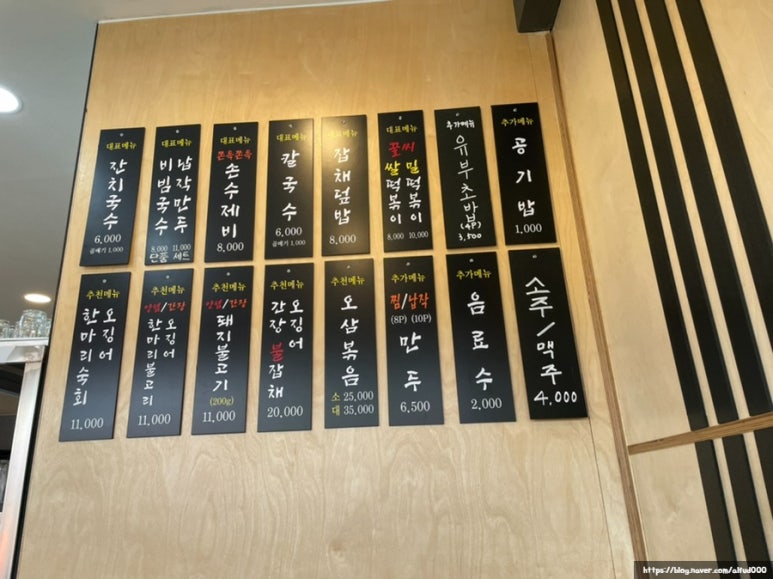 대표메뉴
잔치국수
6,000
곱빼기 1,000
대표메뉴
비빔국수 납작만두
8,000 11,000
단품 세트
대표메뉴
쫀득쫀득
손수제비
8,000
대표메뉴
칼국수
6,000
곱빼기 1,000
대표메뉴
잡채덮밥
8,000
대표메뉴
꿀씨
쌀떡볶이 밀떡볶이
8,000 10,000
추가메뉴
유부초밥
(4P)
3,500
추가메뉴
공기밥
1,000
추천메뉴
오징어
한마리숙회
11,000
추천메뉴
양념/간장
오징어
한마리불고리
11,000
추천메뉴
양념/간장
돼지불고기
(200g)
11,000
추천메뉴
오징어
간장불잡채
20,000
추천메뉴
오삼볶음
소 25,000
대 35,000
추가메뉴
찜/납작
(8P) (10P)
만두
6,500
추가메뉴
음료수
2,000
소주/맥주
4,000
https://blog.naver.com/alfud000